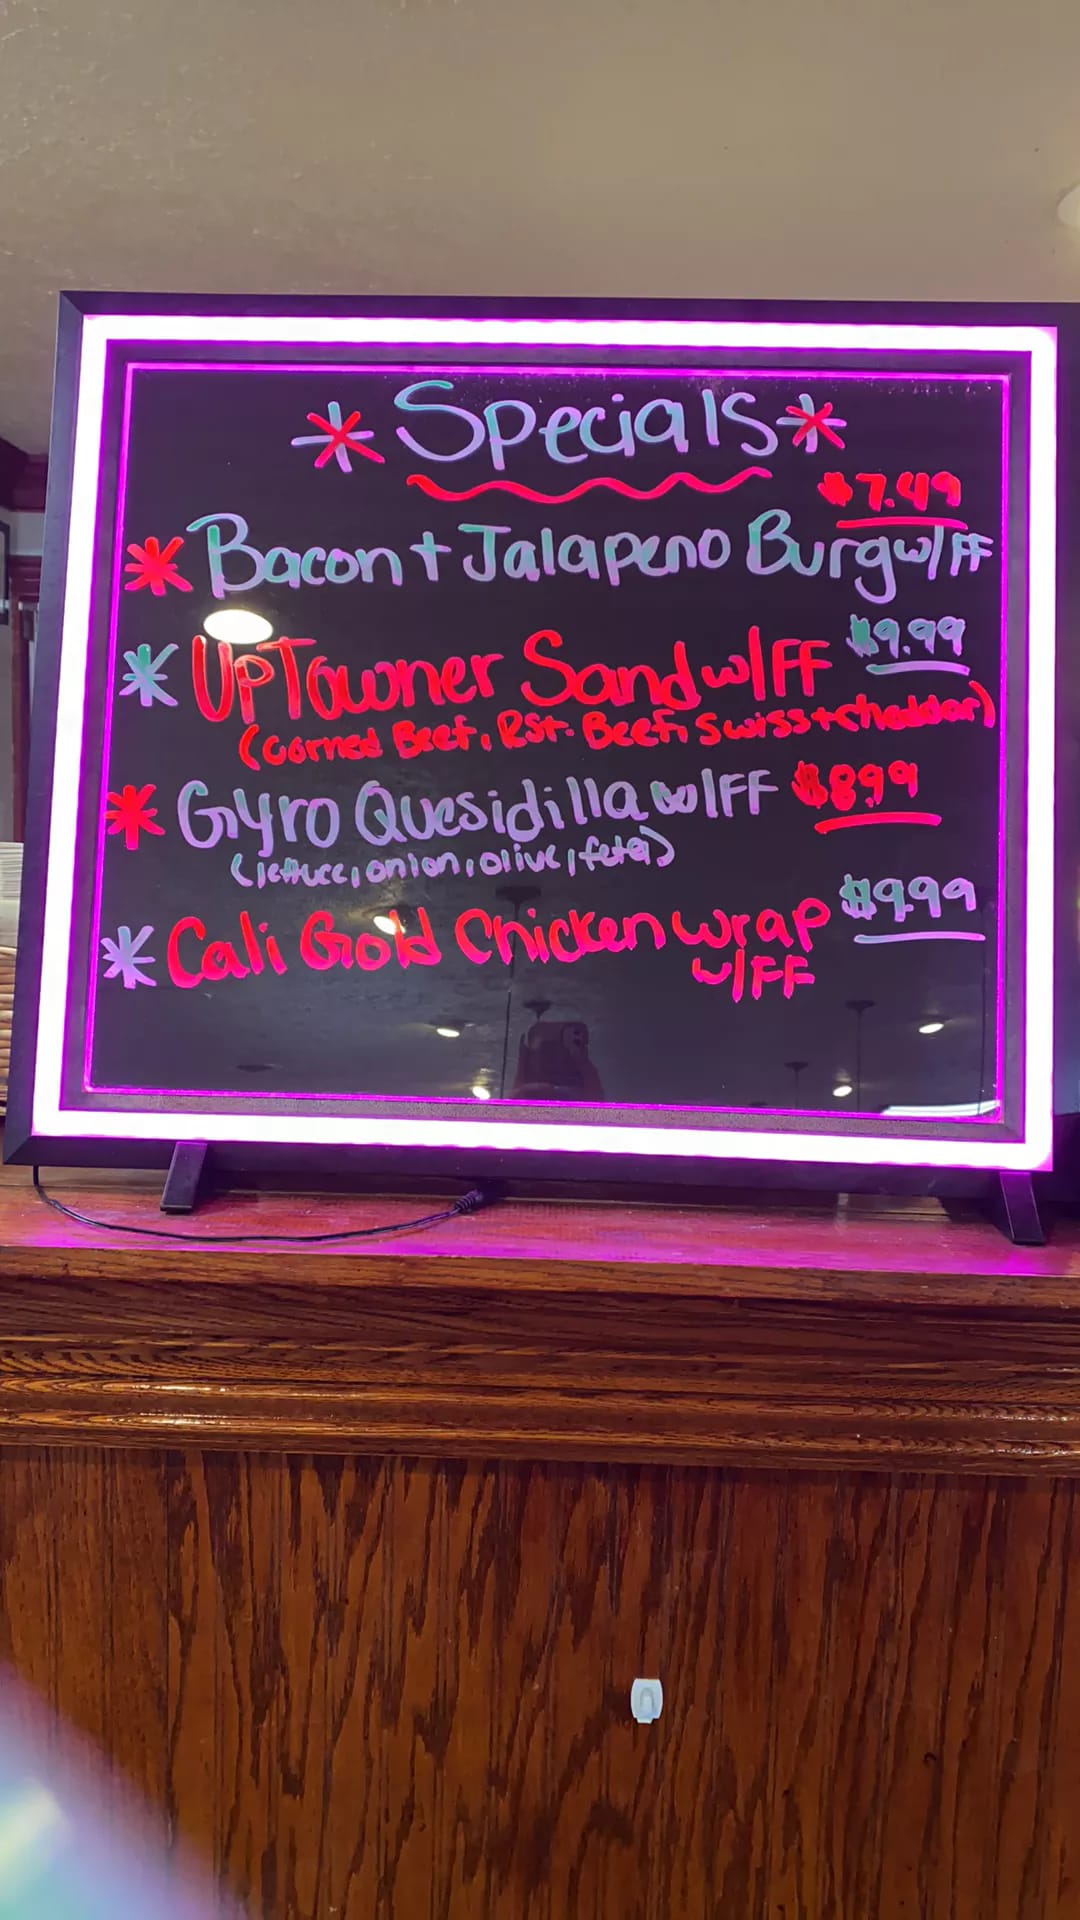 * Specials *
$7.49
* Bacon + Jalapeno Burg w/FF
* UpTowner Sand w/FF $9.99
(Corned Beef, Rst. Beef, Swiss + cheddar)
* Gyro Quesidilla w/FF $8.99
(lettuce, onion, olive, feta)
* Cali Gold Chicken wrap $9.99
w/FF